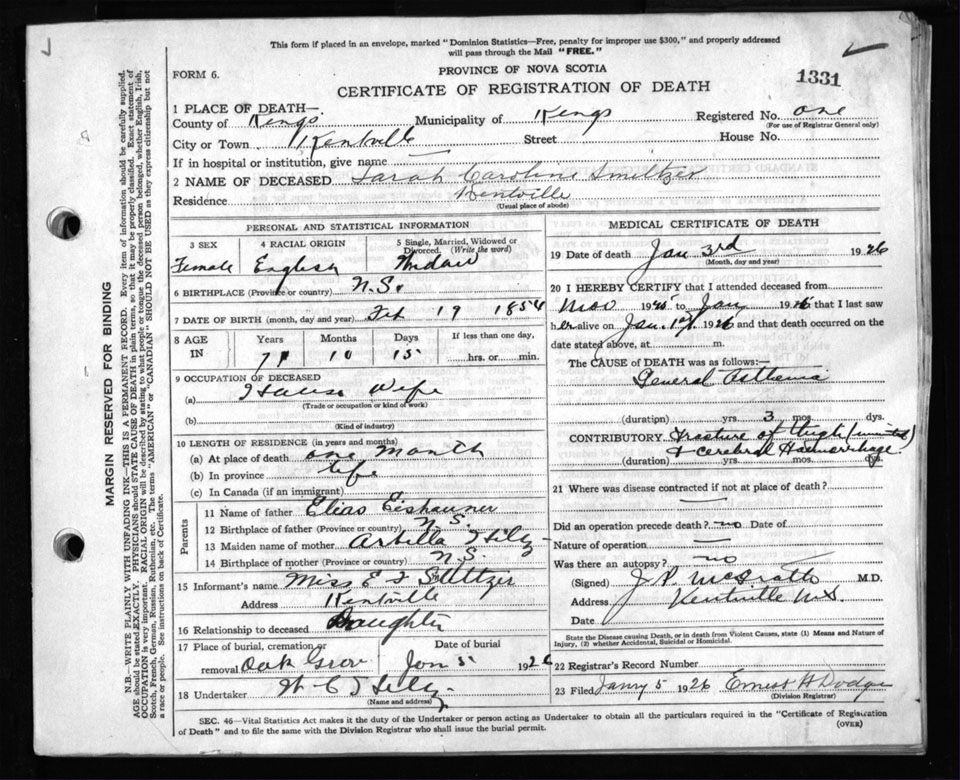 This form if placed in an envelope, marked "Dominion Statistics—Free, penalty for improper use $300," and properly addressed
will pass through the Mail "FREE."
FORM 6.
PROVINCE OF NOVA SCOTIA
1331
CERTIFICATE OF REGISTRATION OF DEATH
1 PLACE OF DEATH—
County of Kings Municipality of Kings Registered No. one
(For use of Registrar General only)
City or Town Kentville Street House No.
If in hospital or institution, give name —
2 NAME OF DECEASED Sarah Caroline Smeltzer
Residence Kentville
(Usual place of abode)
PERSONAL AND STATISTICAL INFORMATION
3 SEX 4 RACIAL ORIGIN 5 Single, Married, Widowed or Divorced. (Write the word)
Female English Widow
6 BIRTHPLACE (Province or country) N.S.
7 DATE OF BIRTH (month, day and year) Feb 19 1854
8 AGE IN Years Months Days If less than one day,
71 10 15 hrs. or min.
9 OCCUPATION OF DECEASED
(a) House Wife
(Trade or occupation or kind of work)
(b)
(Kind of industry)
10 LENGTH OF RESIDENCE (in years and months)
(a) At place of death one month
(b) In province life
(c) In Canada (if an immigrant)
Parents
11 Name of father Elias Eishauner
12 Birthplace of father (Province or country) N.S.
13 Maiden name of mother
14 Birthplace of mother (Province or country) N.S.
15 Informant's name Miss E
Address Kentville
16 Relationship to deceased Daughter
17 Place of burial, cremation or Date of burial
removal Oak Grove Jan 5 1926
18 Undertaker
(Name and address)
MEDICAL CERTIFICATE OF DEATH
19 Date of death Jan 3rd 1926
(Month, day and year)
20 I HEREBY CERTIFY that I attended deceased from
Nov 1925 to Jan 1926 that I last saw
her alive on Jan. 1st 1926 and that death occurred on the
date stated above, at m.
The CAUSE OF DEATH was as follows:—
General Asthenia
(duration) yrs. 3 mos. dys.
CONTRIBUTORY Fracture of thigh (ununited)
& cerebral Haemorrhage
(duration) yrs. mos. dys.
21 Where was disease contracted if not at place of death?
—
Did an operation precede death? no Date of
Nature of operation —
Was there an autopsy? no
(Signed) J.P. McGrath M.D.
Address Kentville N.S.
Date
State the Disease causing Death, or in death from Violent Causes, state (1) Means and Nature of
Injury, (2) whether Accidental, Suicidal or Homicidal.
22 Registrar's Record Number
23 Filed Janry 5 1926 Ernest H Dodge
(Division Registrar)
SEC. 46—Vital Statistics Act makes it the duty of the Undertaker or person acting as Undertaker to obtain all the particulars required in the "Certificate of Registration
of Death" and to file the same with the Division Registrar who shall issue the burial permit.
(OVER)
MARGIN RESERVED FOR BINDING
N.B.—WRITE PLAINLY, WITH UNFADING INK—THIS IS A PERMANENT RECORD. Every item of information should be carefully supplied.
AGE should be stated EXACTLY. PHYSICIANS should STATE CAUSE OF DEATH in plain terms, so that it may be properly classified. Exact statement of
OCCUPATION is very important. RACIAL ORIGIN will be described by stating to what people or tongue the deceased person belonged, whether English, Irish,
Scotch, French, German, Russian, Ruthenian, etc. The terms "AMERICAN" or "CANADIAN" SHOULD NOT BE USED as they express citizenship but not
a race or people. See instructions on back of Certificate.